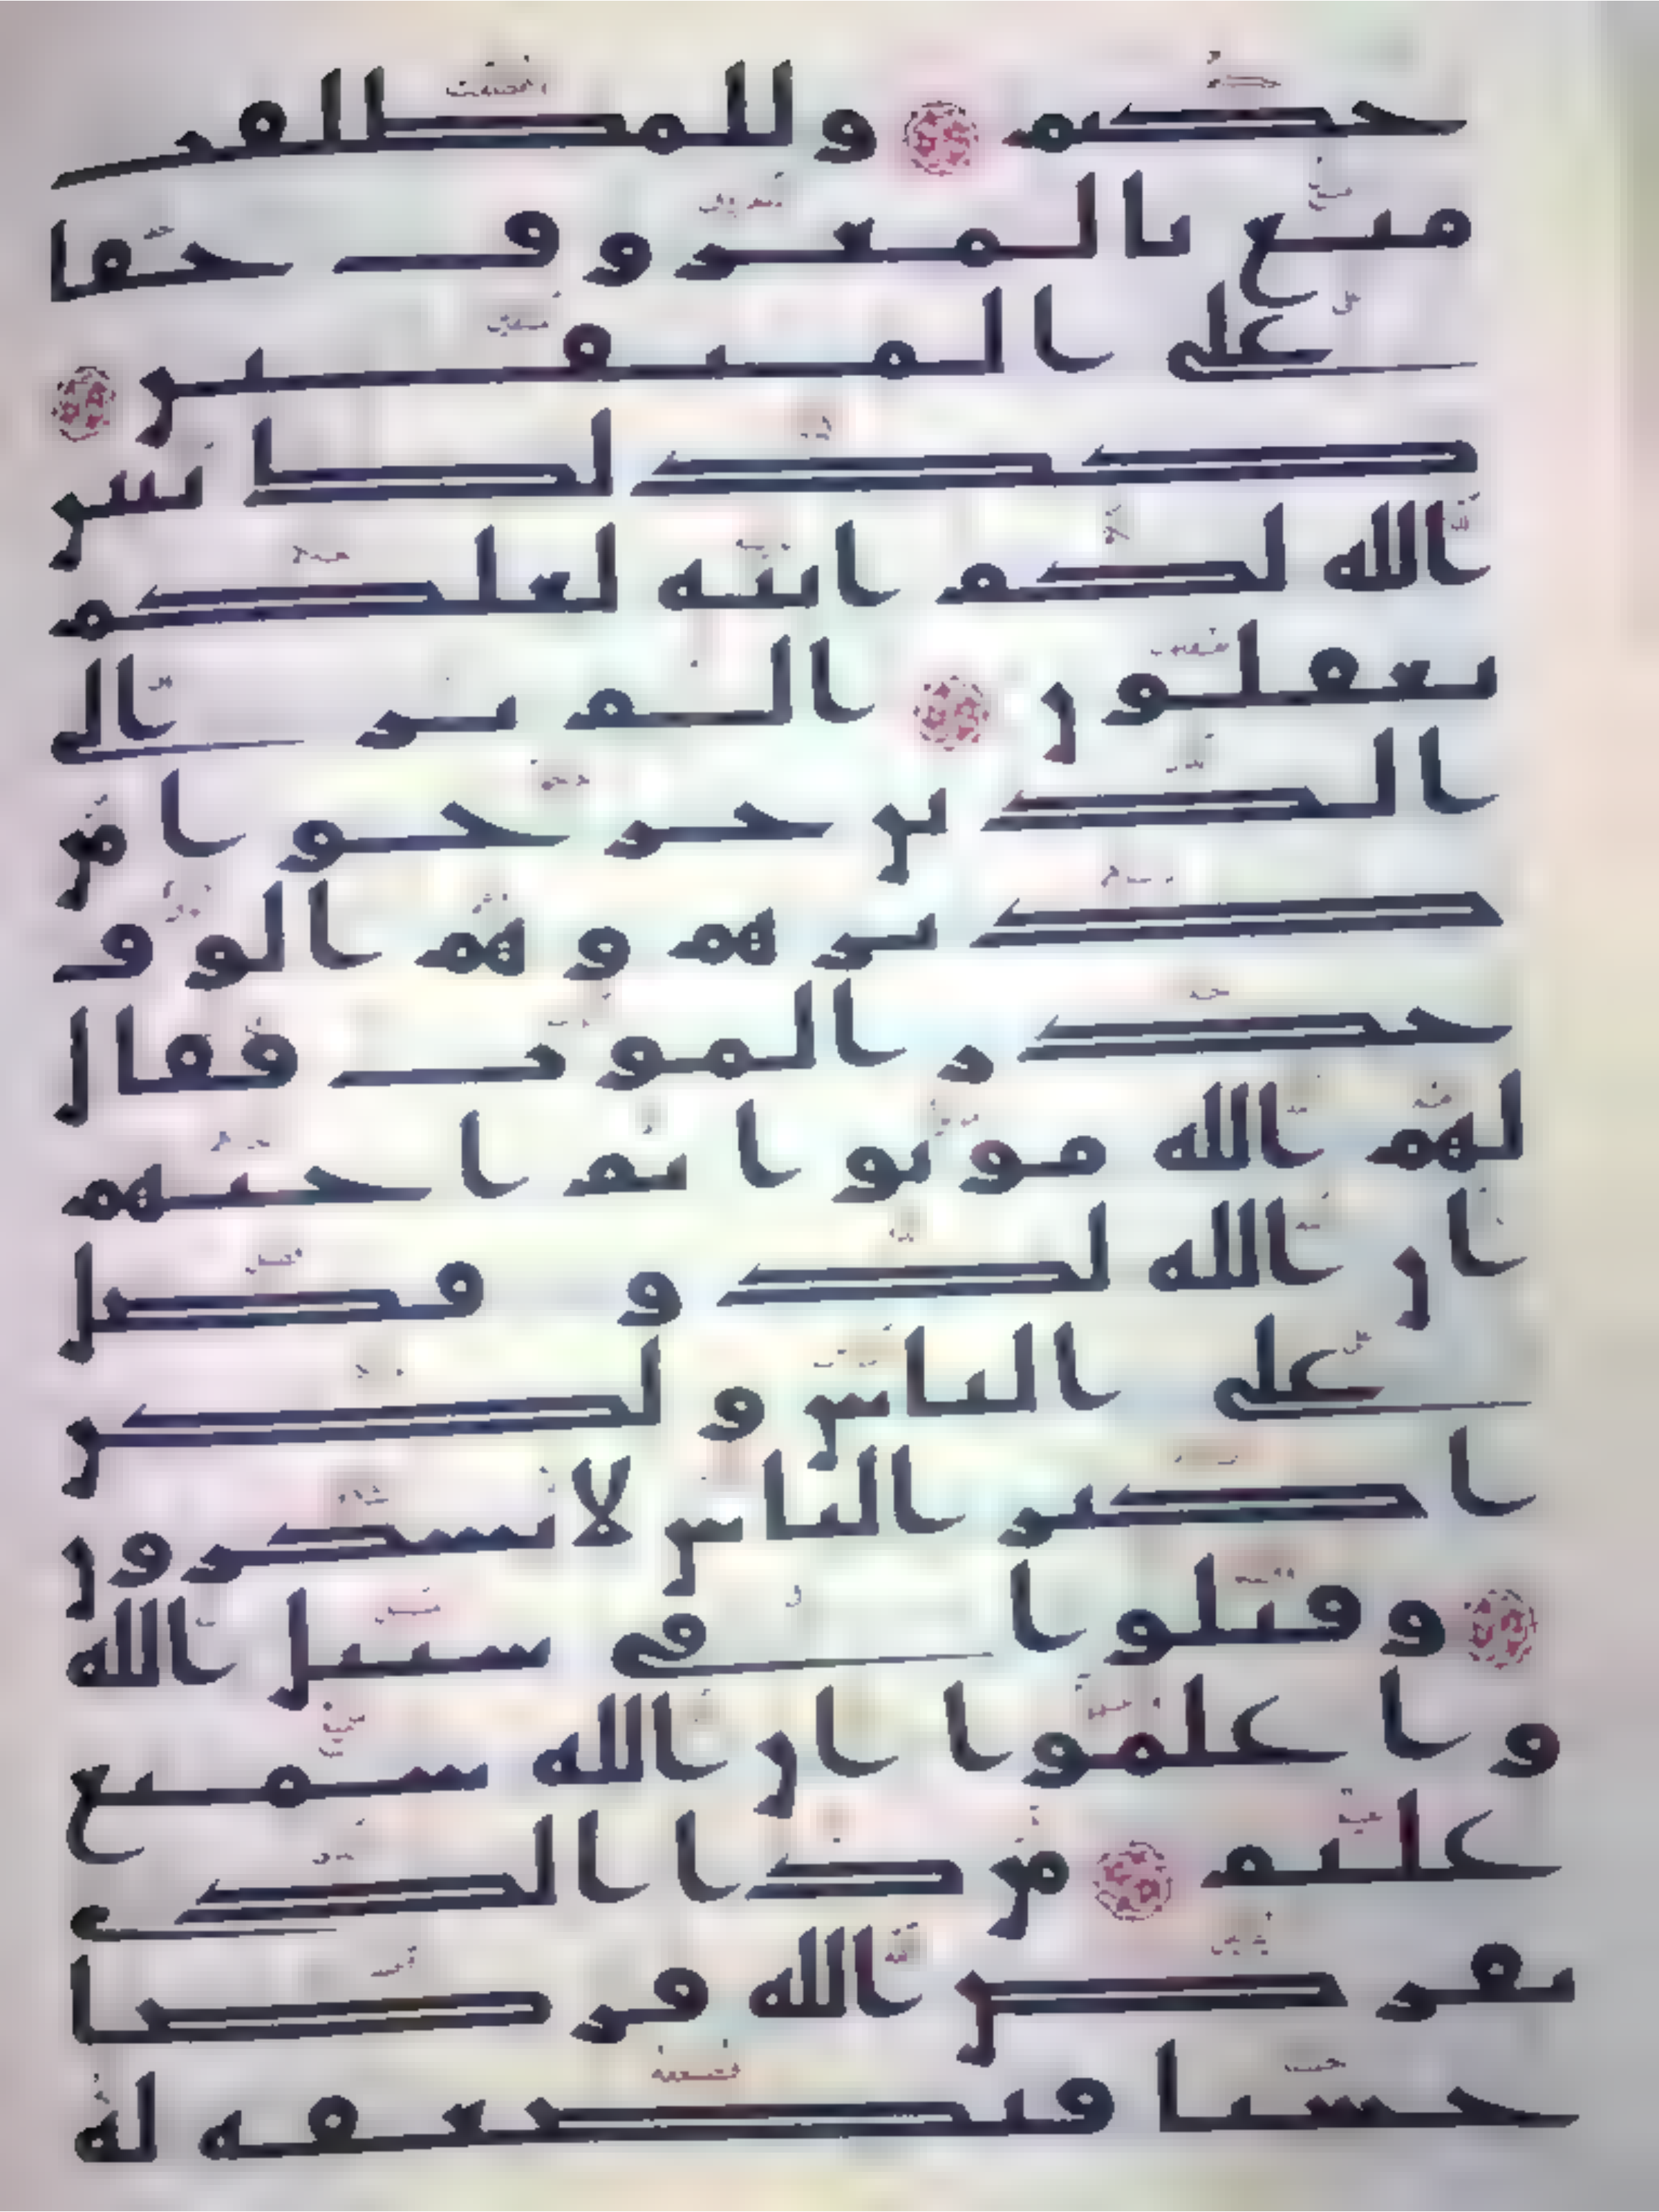 حكيم وللمطلقت
متع بالمعروف حقا
على المتقين
كذلك يبين
الله لكم ايته لعلكم
تعقلون الم تر الى
الذين خرجوا من
ديرهم وهم الوف
حذر الموت فقال
لهم الله موتوا ثم احيهم
ان الله لذو فضل
على الناس ولكن
اكثر الناس لا يشكرون
وقتلوا في سبيل الله
واعلموا ان الله سميع
عليم من ذا الذي
يقرض الله قرضا
حسنا فيضعفه له